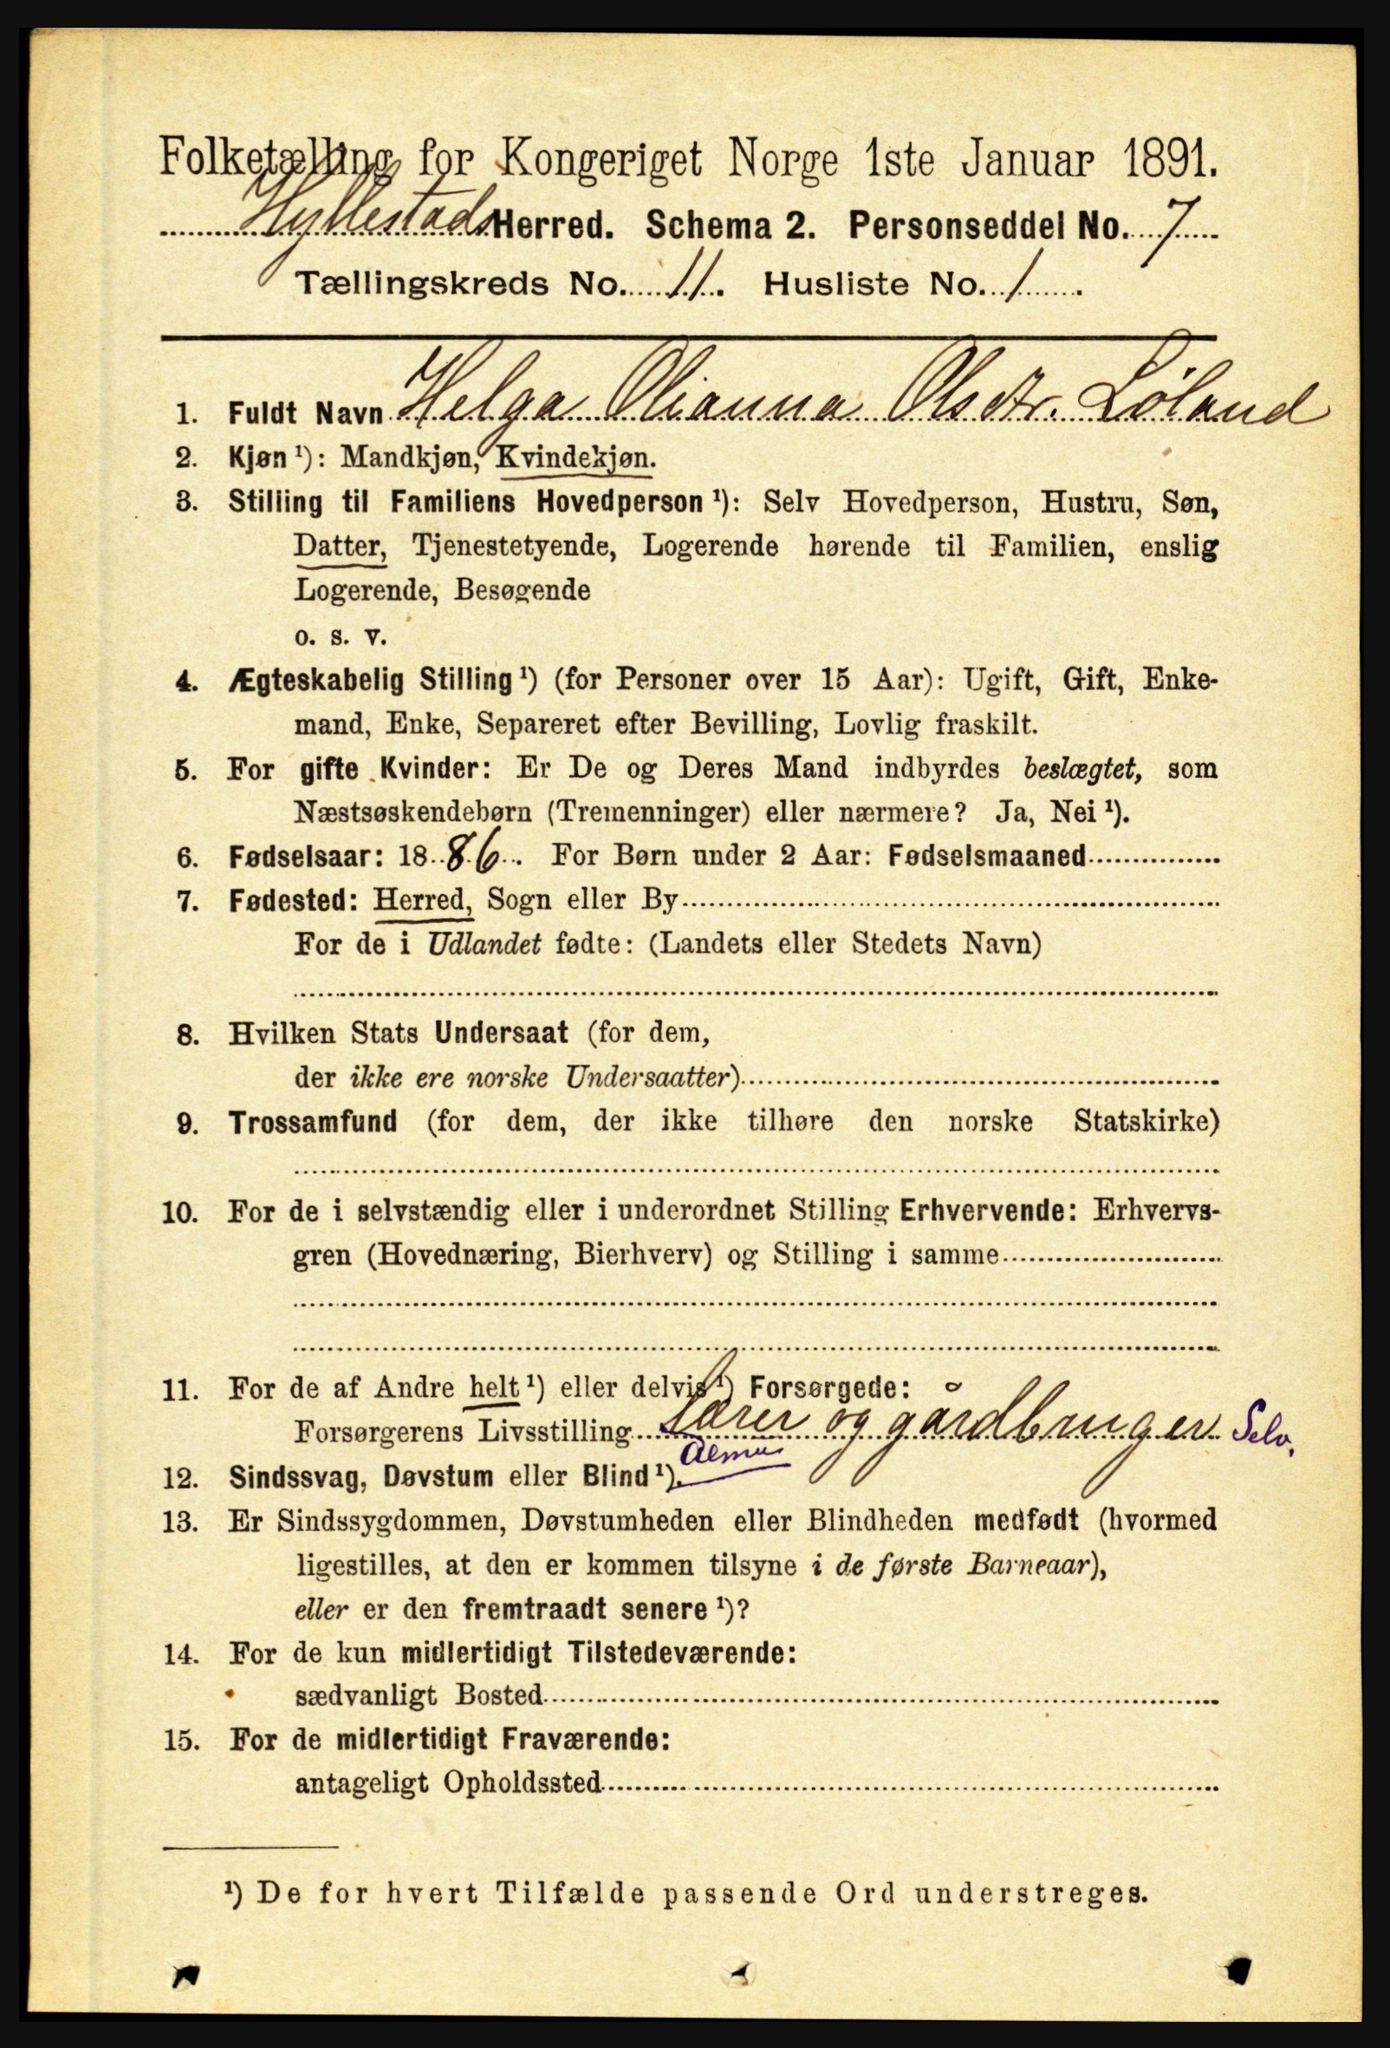 Folketælling for Kongeriget Norge 1ste Januar 1891.
Hyllestads Herred. Schema 2. Personseddel No. 7
Tællingskreds No. 11. Husliste No. 1.
1. Fuldt Navn Helga Olianna Olsdtr. Løland
2. Kjøn ¹): Mandkjøn, Kvindekjøn.
3. Stilling til Familiens Hovedperson ¹): Selv Hovedperson, Hustru, Søn,
Datter, Tjenestetyende, Logerende hørende til Familien, enslig
Logerende, Besøgende
o. s. v.
4. Ægteskabelig Stilling ¹) (for Personer over 15 Aar): Ugift, Gift, Enke-
mand, Enke, Separeret efter Bevilling, Lovlig fraskilt.
5. For gifte Kvinder: Er De og Deres Mand indbyrdes beslægtet, som
Næstsøskendebørn (Tremenninger) eller nærmere? Ja, Nei ¹).
6. Fødselsaar: 1886. For Børn under 2 Aar: Fødselsmaaned
7. Fødested: Herred, Sogn eller By
For de i Udlandet fødte: (Landets eller Stedets Navn)
8. Hvilken Stats Undersaat (for dem,
der ikke ere norske Undersaatter)
9. Trossamfund (for dem, der ikke tilhøre den norske Statskirke)
10. For de i selvstændig eller i underordnet Stilling Erhvervende: Erhvervs-
gren (Hovednæring, Bierhverv) og Stilling i samme
11. For de af Andre helt ¹) eller delvis ¹) Forsørgede:
Forsørgerens Livsstilling Lærer og gårdbruger Selv.
Almue
12. Sindssvag, Døvstum eller Blind ¹).
13. Er Sindssygdommen, Døvstumheden eller Blindheden medfødt (hvormed
ligestilles, at den er kommen tilsyne i de første Barneaar),
eller er den fremtraadt senere ¹)?
14. For de kun midlertidigt Tilstedeværende:
sædvanligt Bosted
15. For de midlertidigt Fraværende:
antageligt Opholdssted
¹) De for hvert Tilfælde passende Ord understreges.